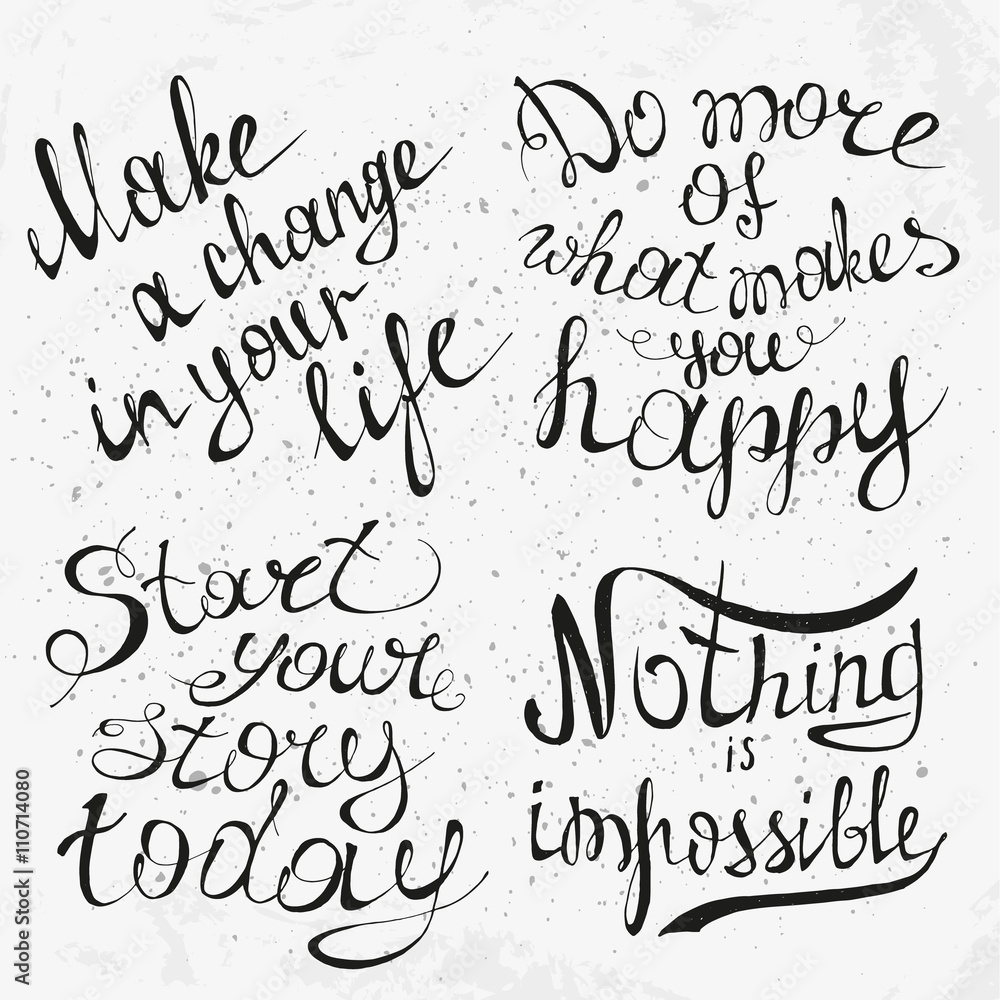 Make
a change
in your
life
Do more
of
what makes
you
happy
Start
your
story
today
Nothing
is
impossible
Adobe Stock | #110714080